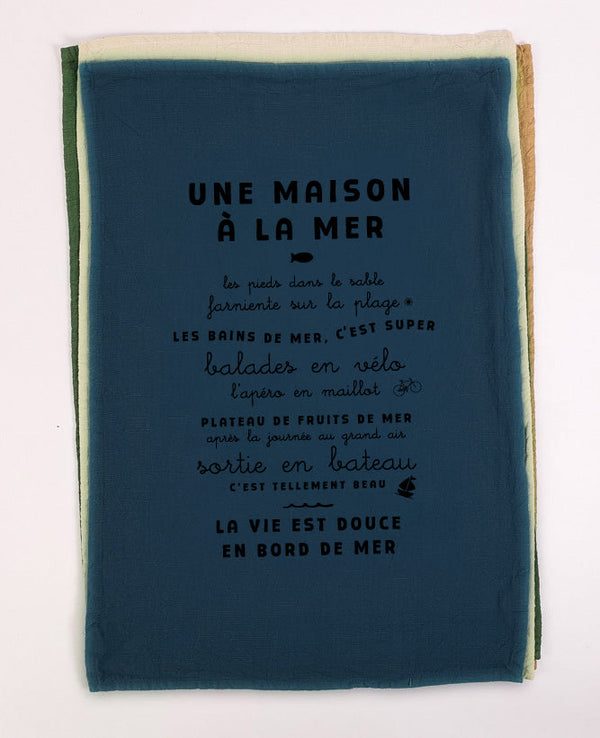 UNE MAISON
À LA MER
les pieds dans le sable
farniente sur la plage
LES BAINS DE MER, C'EST SUPER
balades en vélo
l'apéro en maillot
PLATEAU DE FRUITS DE MER
après la journée au grand air
sortie en bateau
C'EST TELLEMENT BEAU
LA VIE EST DOUCE
EN BORD DE MER